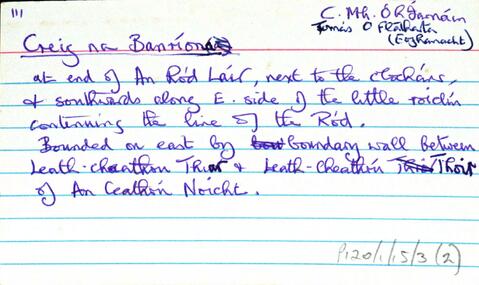 111
C. Mh. Ó R Darnáin
Tomás O Flátharta
(Eoghanacht)
Creig na Banríona
at end of An Ród Láir, next to the clocháns,
& southwards along E. side of the little róidín
continuing the line of the Ród.
Bounded on east by boundary wall between
Leath-cheathrú Thiar & Leath-cheathrú Thoir
of An Ceathrú Nóicht.
P120/1/15/3 (2)